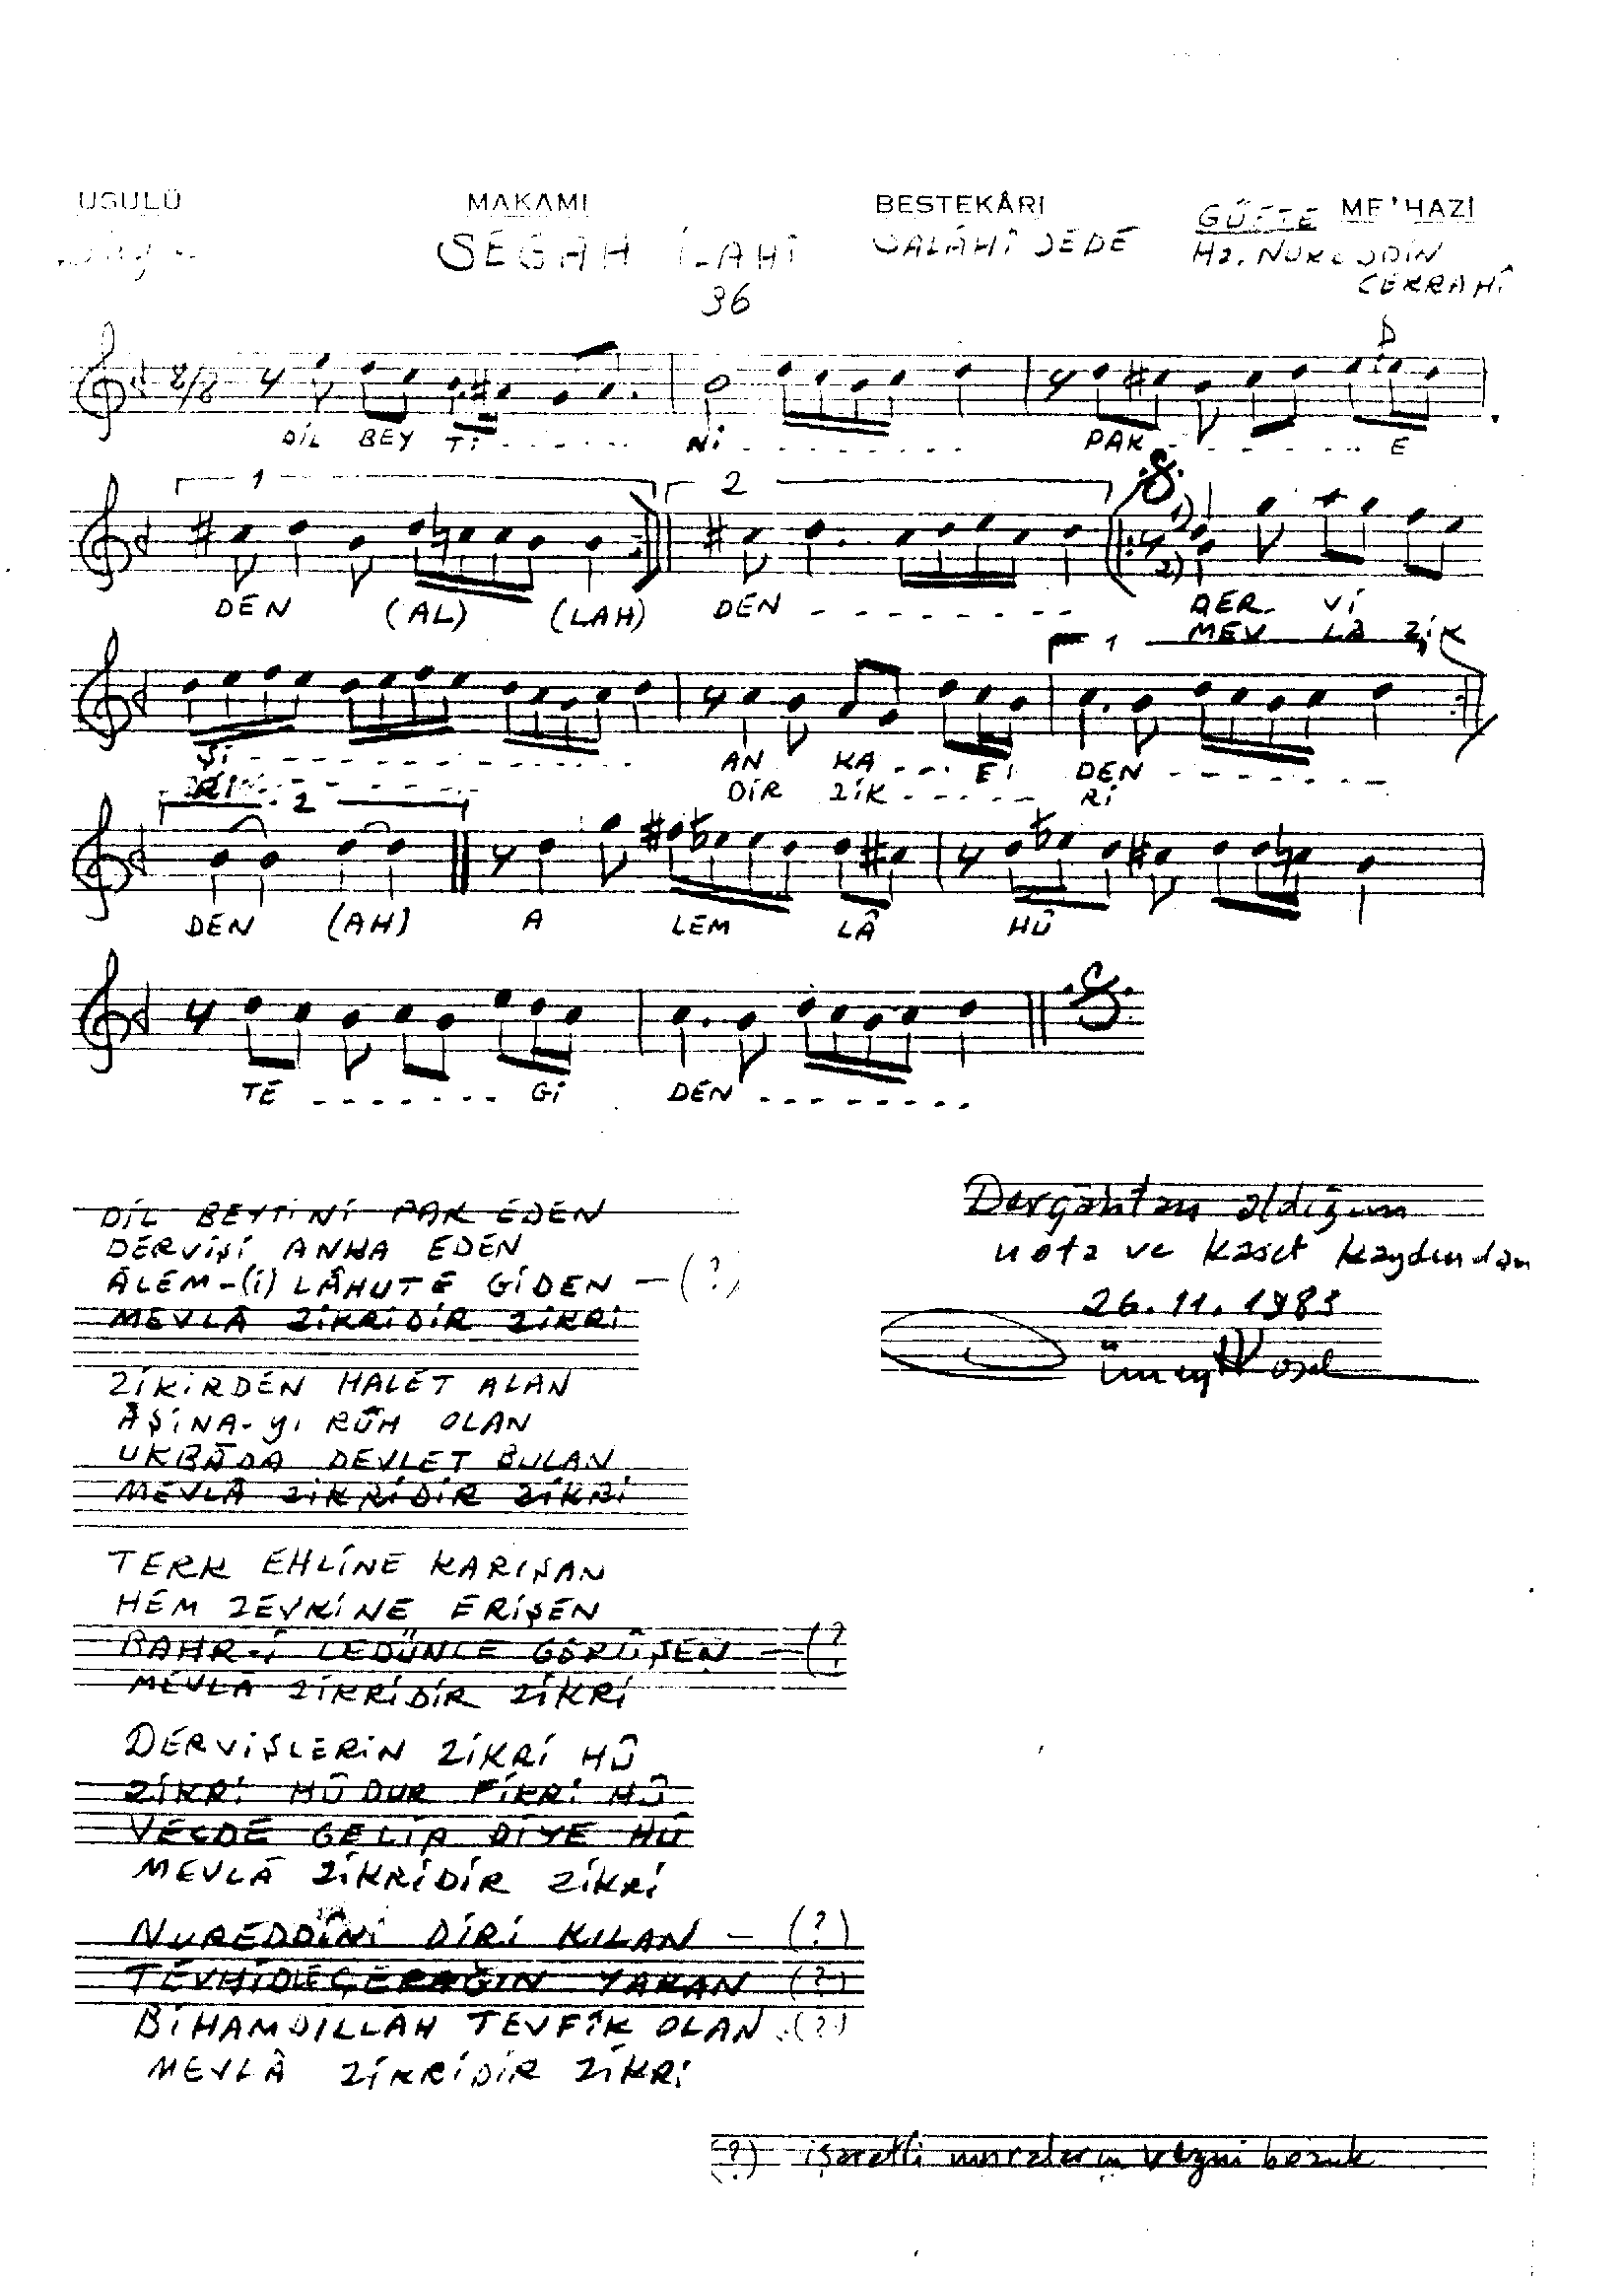 USULÜ MAKAMI BESTEKÂRI GÜFTE ME'HAZİ
SEGAH İLAHİ SALÂHİ DEDE Hz. NUREDDİN
CERRAHİ
36
8/8
DİL BEY Tİ Nİ PAK E
1 2
DEN (AL) (LAH) DEN DER Vİ
MEV LÂ ZİK
1) 2)
1
Şİ AN KA E DEN
Rİ DİR ZİK Rİ
2
DEN (AH) A LEM LÂ HÛ
TE Gİ DEN
DİL BEYTİNİ PAK EDEN
DERVİŞİ ANKA EDEN
ÂLEM-(İ) LÂHUTE GİDEN - (?)
MEVLÂ ZİKRİDİR ZİKRİ
ZİKİRDEN HALET ALAN
ÂŞİNA-yı RÛH OLAN
UKBÂDA DEVLET BULAN
MEVLÂ ZİKRİDİR ZİKRİ
TERK EHLİNE KARIŞAN
HEM ZEVKİNE ERİŞEN
BAHR-İ LEDÜNLE GÖRÜŞEN - (?
MEVLÂ ZİKRİDİR ZİKRİ
DERVİŞLERİN ZİKRİ HÛ
ZİKRİ HÛ DUR FİKRİ HÛ
VECDE GELİP DİYE HÛ
MEVLÂ ZİKRİDİR ZİKRİ
NUREDDİNİ DİRİ KILAN - (?)
TEVHİDLE ÇERAĞIN YAKAN (?)
BİHAMDİLLAH TEVFİK OLAN (?)
MEVLÂ ZİKRİDİR ZİKRİ
Dergâhtan aldığım
nota ve kaset kaydından
26.11.1983
(?) işaretli mısraların vezni bozuk